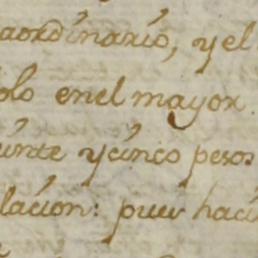 aordinario, y el
olo enel mayor
einte y cinco pesos
lacion: pues haci